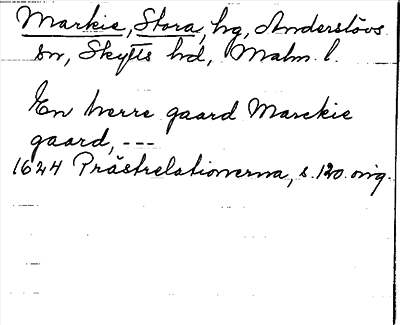 Markie, Stora, hg, Anderslövs
sn, Skytts hd, Malm. l.
En herre gaard Marckie
gaard, ---
1624 Prästrelationerna, s. 120. orig.